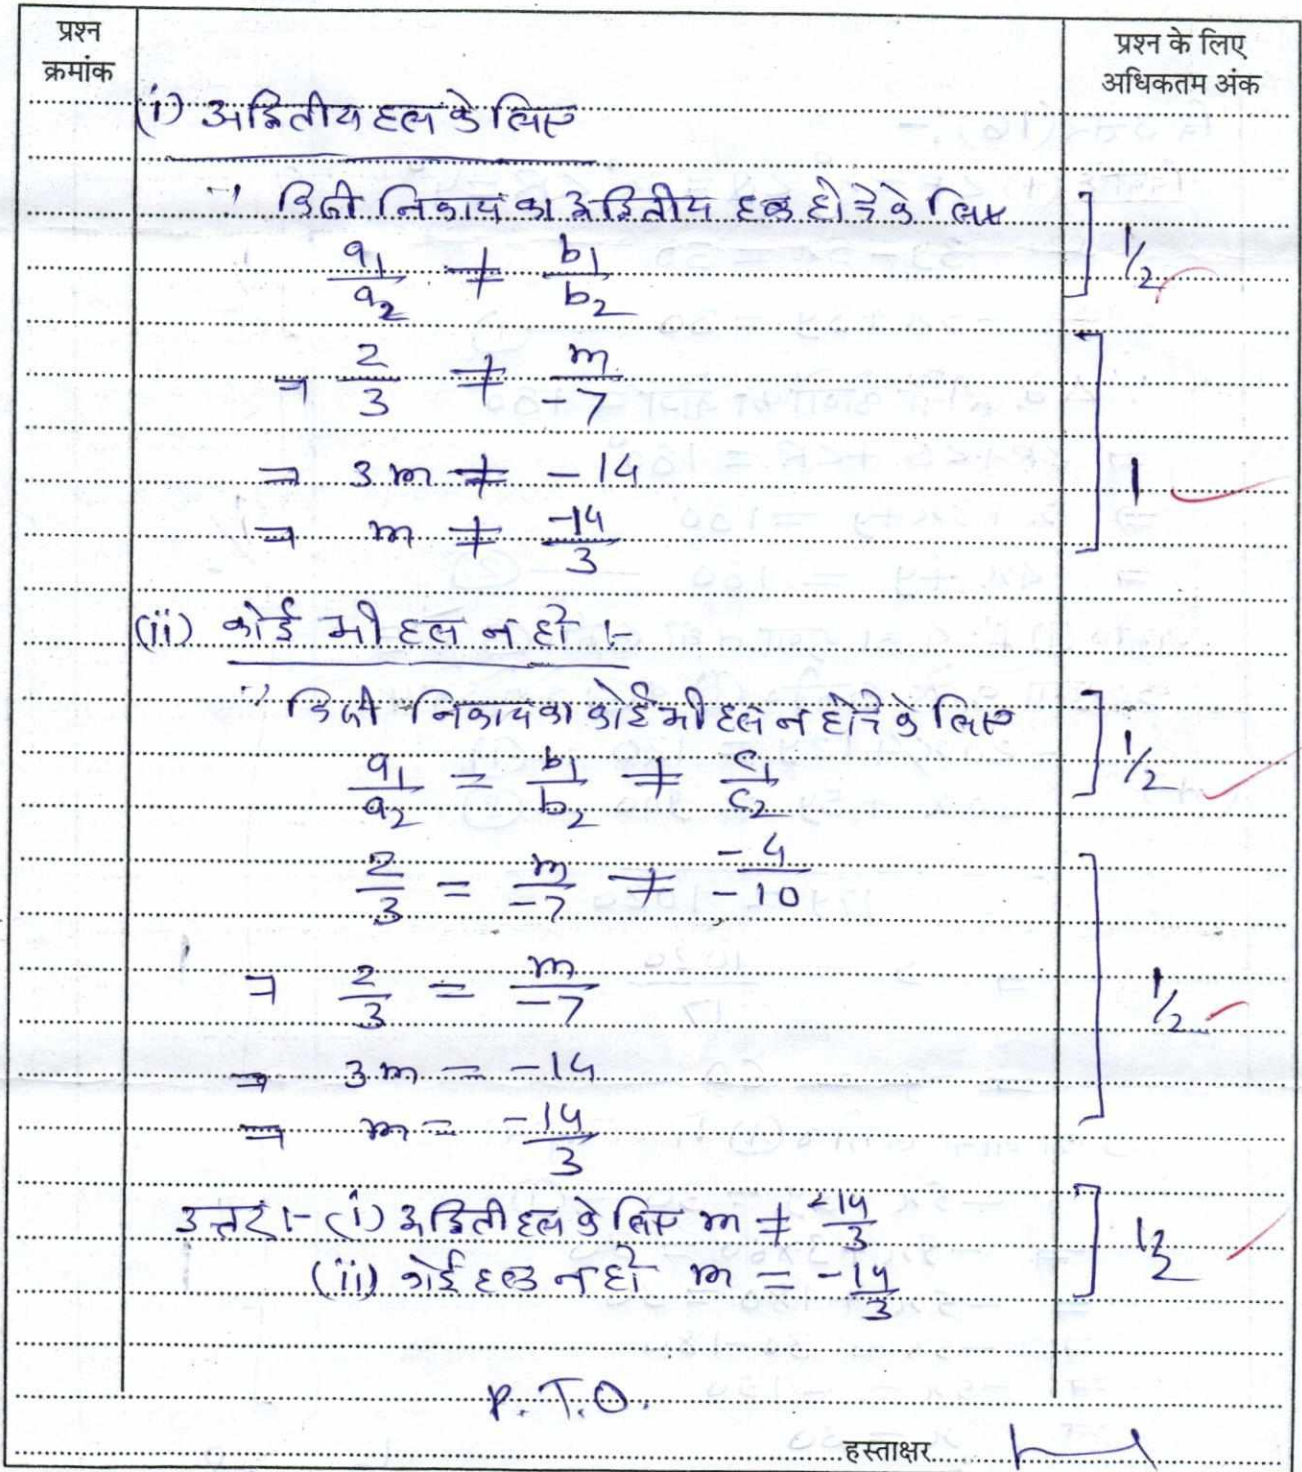 प्रश्न क्रमांक
प्रश्न के लिए अधिकतम अंक
(i) अद्वितीय हल के लिए
∵ किसी निकाय का अद्वितीय हल होने के लिए
a₁/a₂ ≠ b₁/b₂
1/2
⇒ 2/3 ≠ m/-7
⇒ 3m ≠ -14
1
⇒ m ≠ -14/3
(ii) कोई भी हल न हो :-
∵ किसी निकाय का कोई भी हल न होने के लिए
a₁/a₂ = b₁/b₂ ≠ c₁/c₂
1/2
2/3 = m/-7 ≠ -4/-10
⇒ 2/3 = m/-7
1/2
⇒ 3m = -14
⇒ m = -14/3
उत्तर :- (i) अद्विती हल के लिए m ≠ -14/3
(ii) कोई हल न हो m = -14/3
1/2
P.T.O.
हस्ताक्षर